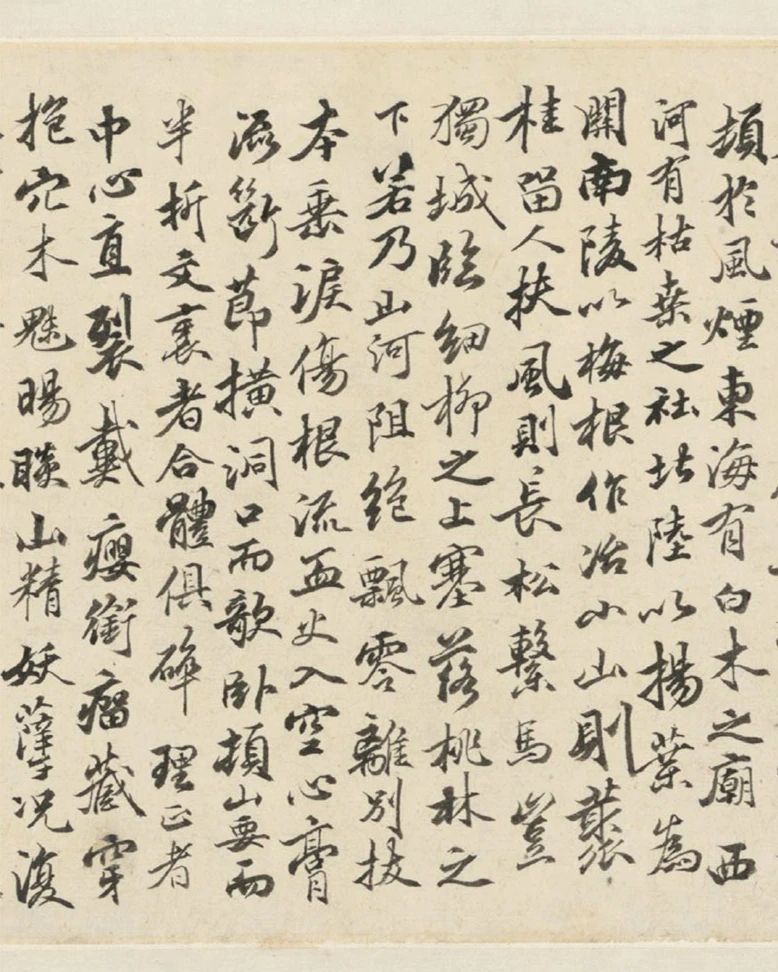 頓於風煙東海有白木之廟西
河有枯桒之社北陸以揚葉為
關南陵以梅根作冶小山則叢
桂留人扶風則長松繫馬豈
獨城臨細柳之上塞落桃林之
下若乃山河阻絕飄零離別拔
本垂淚傷根流血火入空心膏
流斷節橫洞口而欹卧頓山要而
半折文衺者合體俱碎理正者
中心直裂戴癭銜瘤藏穿
抱穴木魅暘睒山精妖孽况復